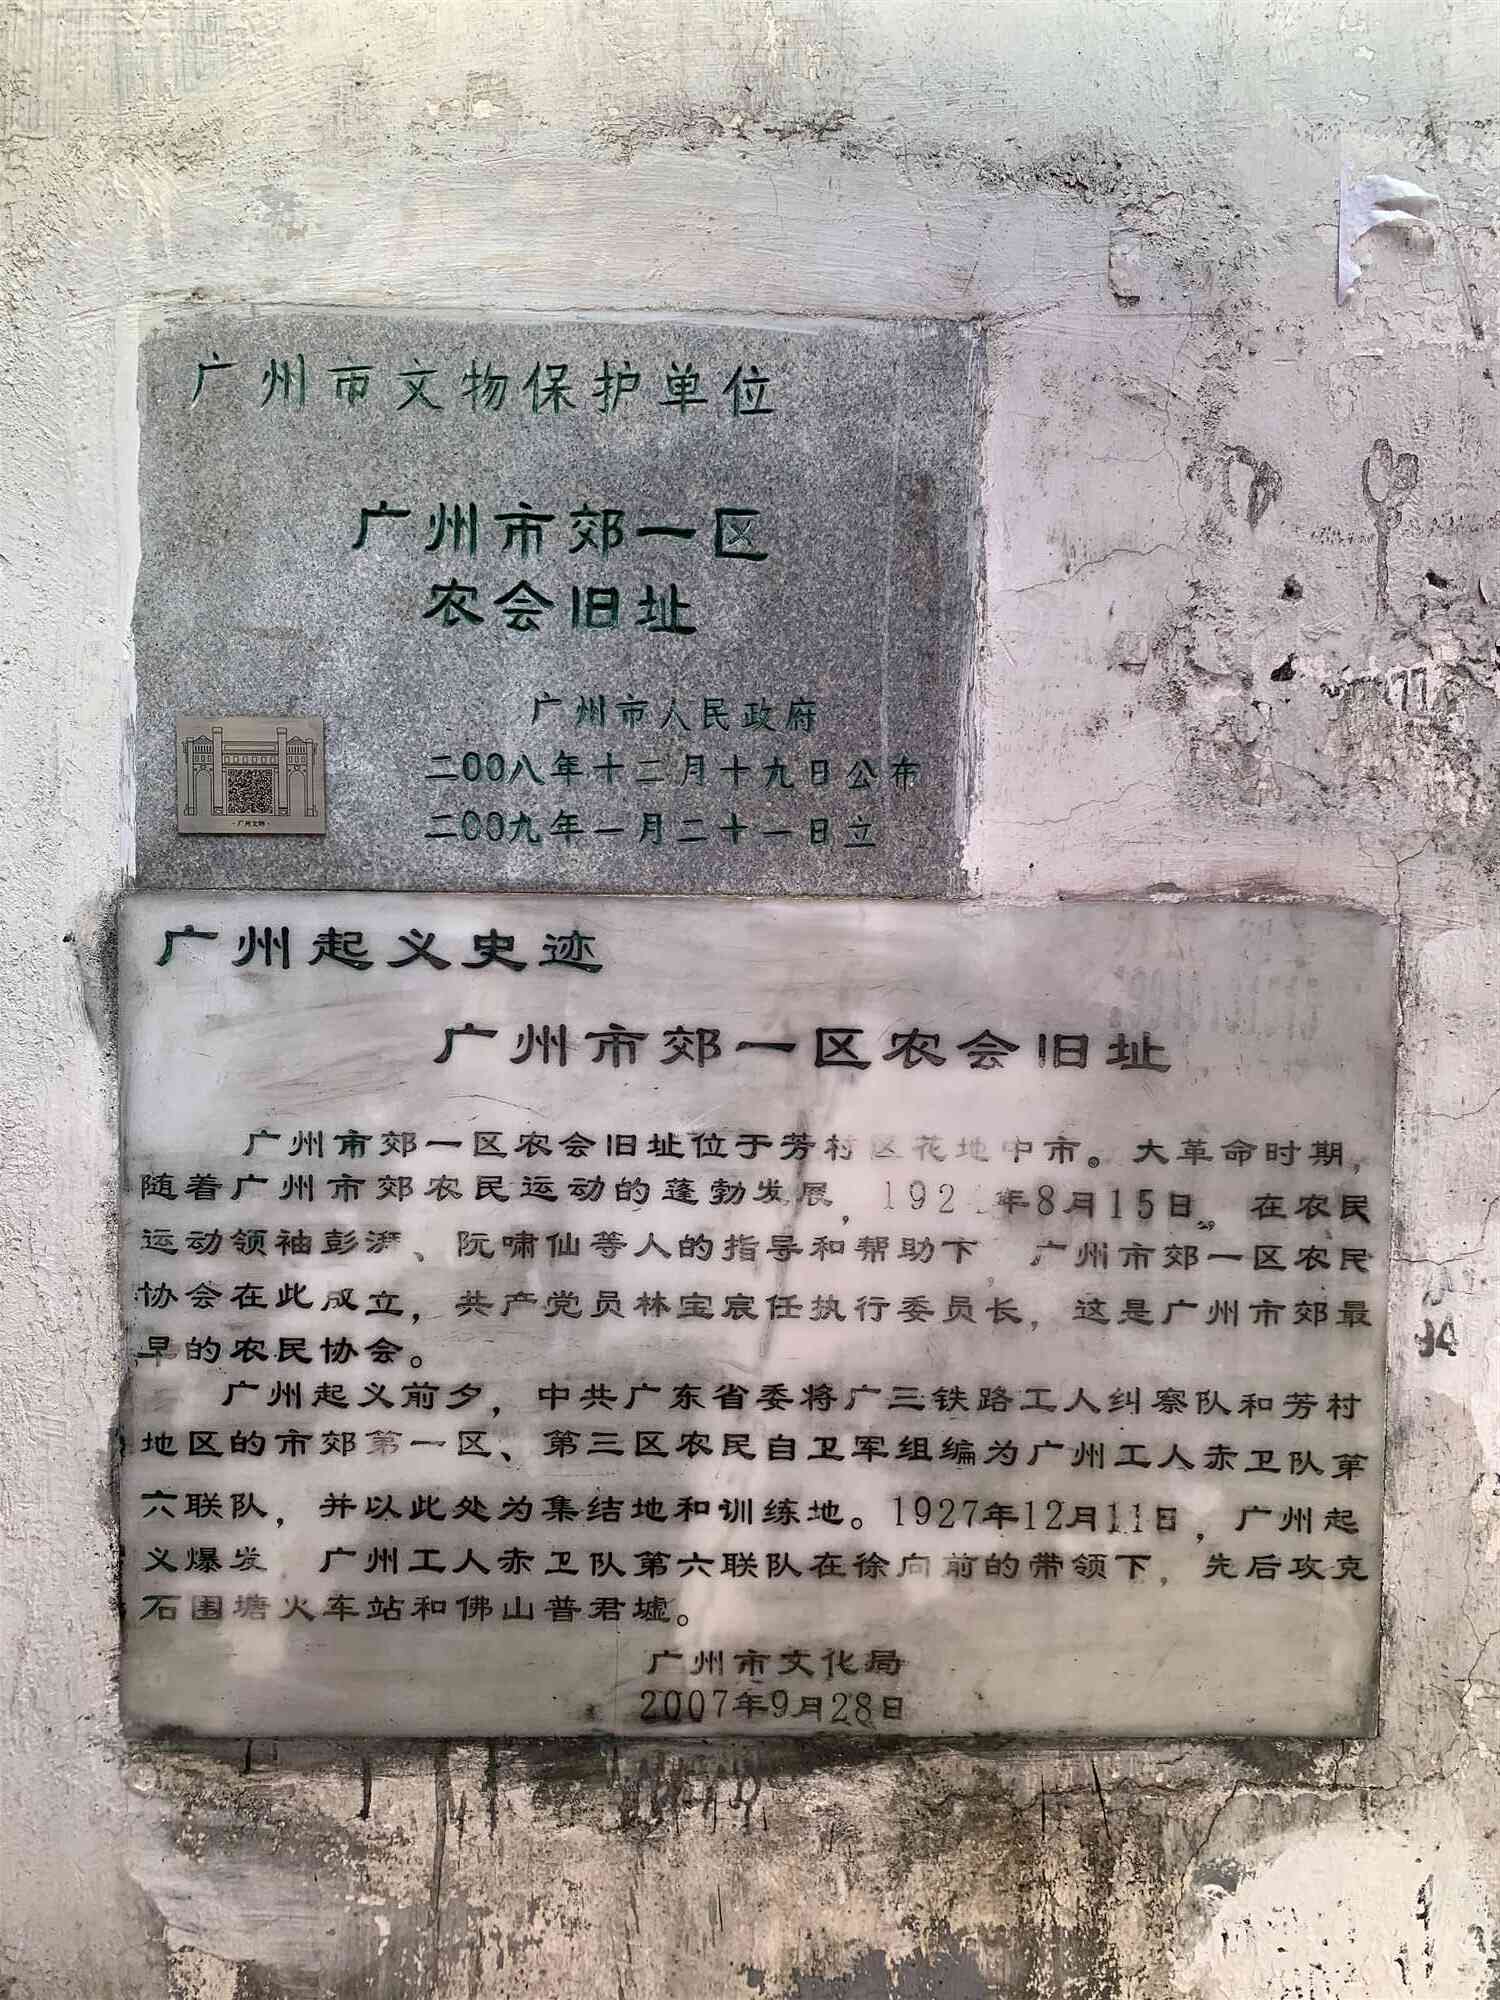 广州市文物保护单位
广州市郊一区
农会旧址
广州市人民政府
二00八年十二月十九日公布
二00九年一月二十一日立
·广州文物·
广州起义史迹
广州市郊一区农会旧址
广州市郊一区农会旧址位于芳村区花地中市。大革命时期，
随着广州市郊农民运动的蓬勃发展，192 年8月15日，在农民
运动领袖彭湃、阮啸仙等人的指导和帮助下，广州市郊一区农民
协会在此成立，共产党员林宝宸任执行委员长，这是广州市郊最
早的农民协会。
广州起义前夕，中共广东省委将广三铁路工人纠察队和芳村
地区的市郊第一区、第三区农民自卫军组编为广州工人赤卫队第
六联队，并以此处为集结地和训练地。1927年12月11日，广州起
义爆发，广州工人赤卫队第六联队在徐向前的带领下，先后攻克
石围塘火车站和佛山普君墟。
广州市文化局
2007年9月28日